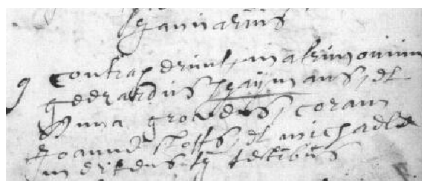 Januarius
9 Contraxerunt matrimonium
Gerardus Haijmans, et
Anna Groetens, coram
Joanne Stoffs, et Michaele
Mertens testibus